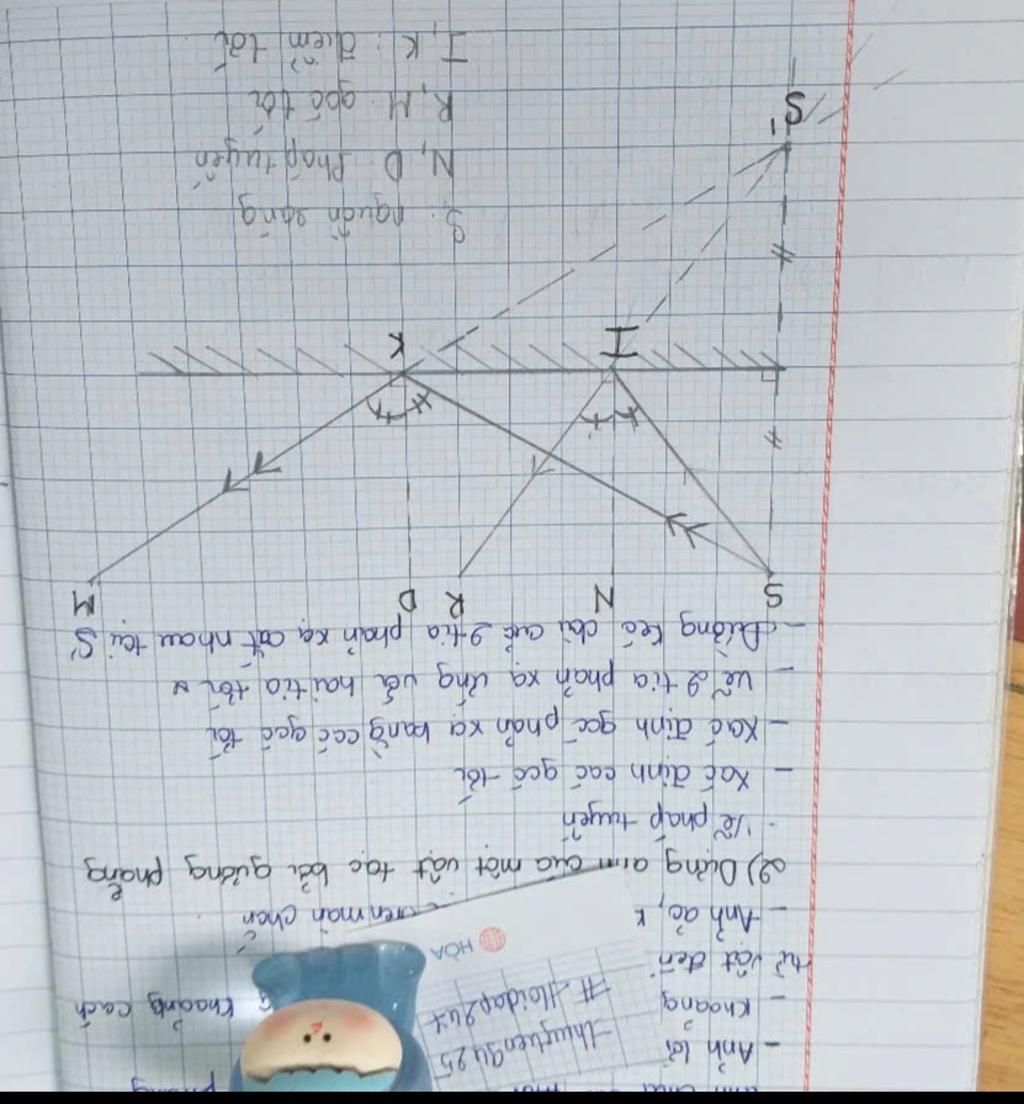 - Ảnh lớ
- Khoảng khoảng cách
từ vật đến
- Ảnh ảo, k trên màn chắn
thuyuen9425
# Hoidap247
HÒA
2) Dựng ảnh của một vật tạo bởi gương phẳng
- Vẽ pháp tuyến
- Xác định các góc tới
- Xác định góc phản xạ bằng các góc tới
- Vẽ 2 tia phản xạ ứng với hai tia tới
- Đường kéo dài của 2 tia phản xạ cắt nhau tại S'
S N R D M
I K
S'
S: nguồn sáng
N, D: Pháp tuyến
R, M: góc tới
I, K: điểm tới